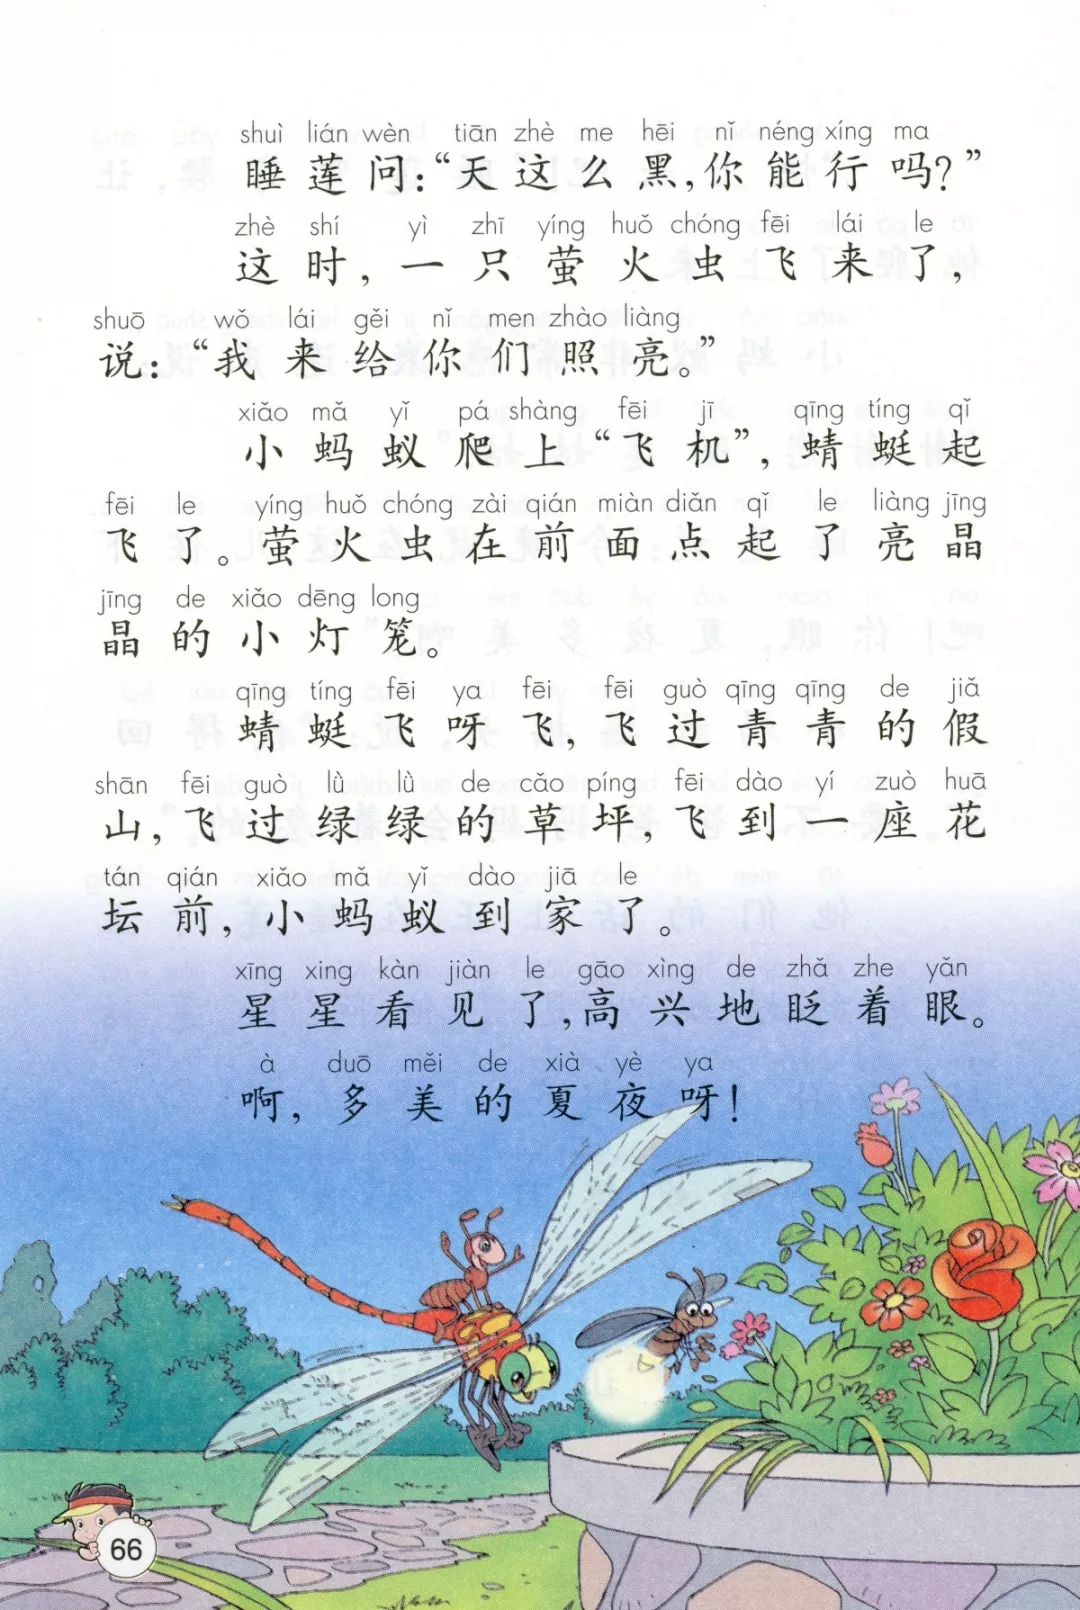 shuì lián wèn tiān zhè me hēi nǐ néng xíng ma
睡莲问：“天这么黑，你能行吗？”
zhè shí yì zhī yíng huǒ chóng fēi lái le
这时，一只萤火虫飞来了，
shuō wǒ lái gěi nǐ men zhào liàng
说：“我来给你们照亮。”
xiǎo mǎ yǐ pá shàng fēi jī qīng tíng qǐ
小蚂蚁爬上“飞机”，蜻蜓起
fēi le yíng huǒ chóng zài qián miàn diǎn qǐ le liàng jīng
飞了。萤火虫在前面点起了亮晶
jīng de xiǎo dēng long
晶的小灯笼。
qīng tíng fēi ya fēi fēi guò qīng qīng de jiǎ
蜻蜓飞呀飞，飞过青青的假
shān fēi guò lǜ lǜ de cǎo píng fēi dào yí zuò huā
山，飞过绿绿的草坪，飞到一座花
tán qián xiǎo mǎ yǐ dào jiā le
坛前，小蚂蚁到家了。
xīng xing kàn jiàn le gāo xìng de zhǎ zhe yǎn
星星看见了，高兴地眨着眼。
à duō měi de xià yè ya
啊，多美的夏夜呀！
66